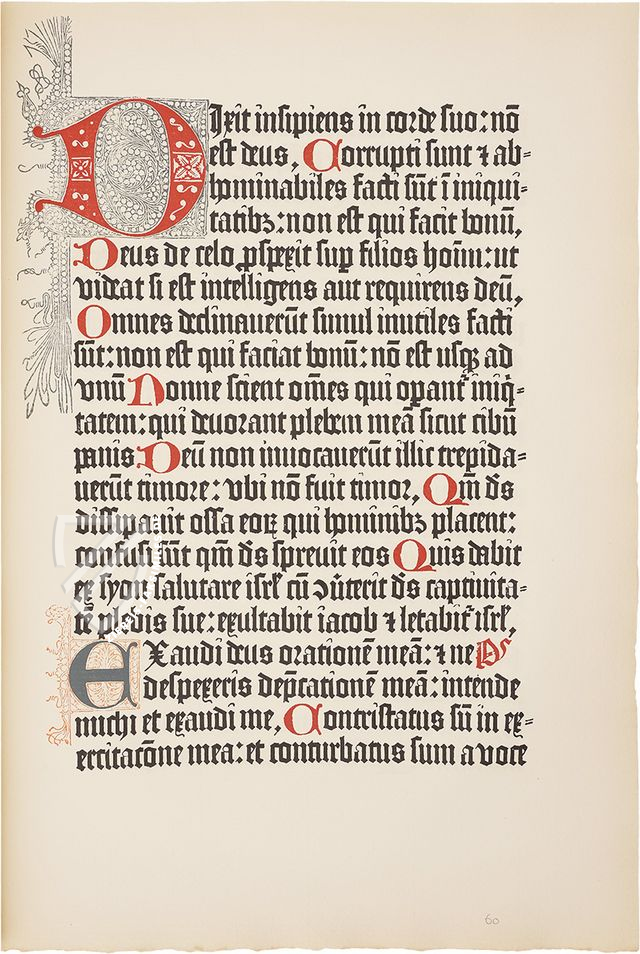 Dixit insipiens in corde suo: nō
est deus, Corrupti sunt ⁊ ab=
hominabiles facti sūt ī iniqui=
tatibꝫ: non est qui facit bonū,
Deus de celo ꝓspexit suꝑ filios hoīm: ut
videat si est intelligens aut requirens deū,
Omnes declinauerūt simul inutiles facti
sūt: non est qui faciat bonū: nō est usqꝫ ad
vnū Nonne scient om̄es qui oꝑant᷑ iniq̄=
tatem: qui deuorant plebem meā sicut cibū
panis Deū non inuocauerūt illic trepida=
uerūt timore: vbi nō fuit timor, Qm̄ ds̄
dissipauit ossa eoꝝ qui hominibꝫ placent:
confusi sūt qm̄ ds̄ spreuit eos Quis dabit
ex syon salutare isrl̄ cū ↄūterit ds̄ captiuita=
tē plebis sue: exultabit iacob ⁊ letabit᷑ isrl̄,
EXaudi deus orationē meā: ⁊ ne Ps
despexeris dep̄cationē meā: intende
michi et exaudi me, Contristatus sū in ex=
ercitac̄one mea: et conturbatus sum a voce
60